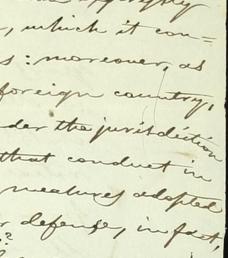 , which it con=
s: moreover, as
foreign country,
der the jurisdiction
that conduct in
measures adopted
defense, in fact,